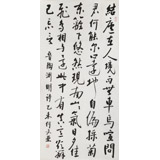 結廬在人境而無車馬喧問
君何能爾心遠地自偏採菊
東籬下悠然見南山山氣日夕佳
飛鳥相與還此中有真意欲辨
已忘言 晉陶淵明詩乙未